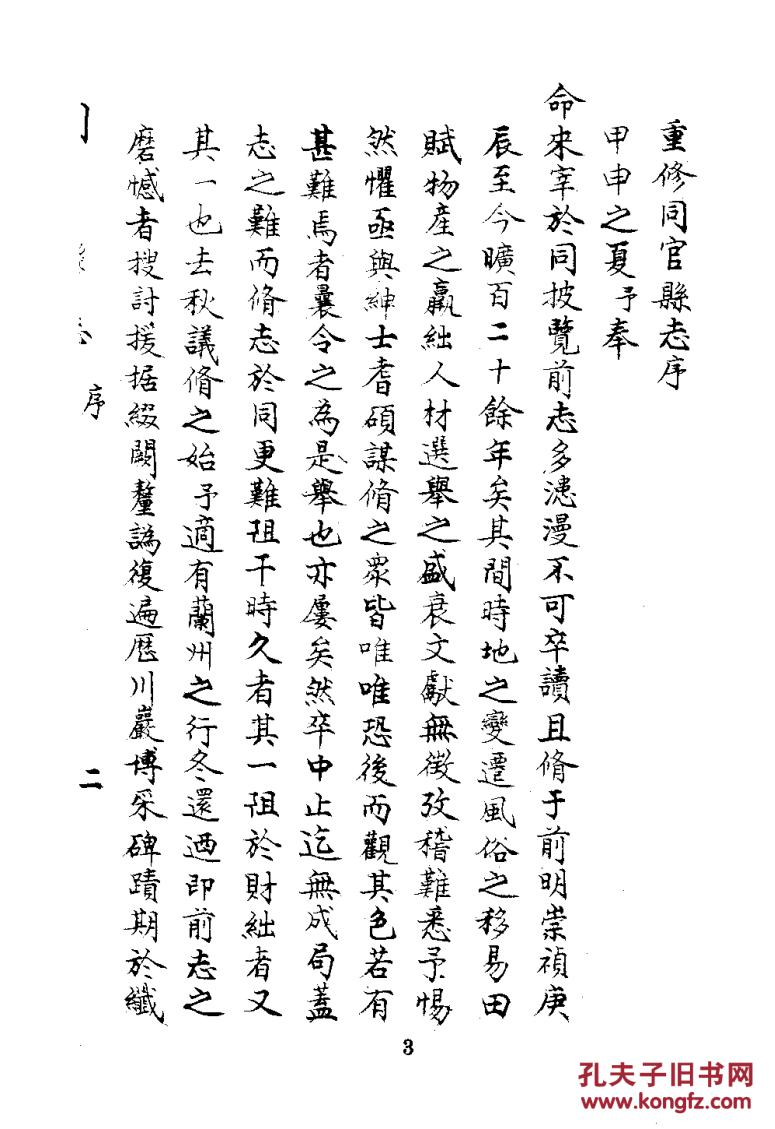 重修同官縣志序
甲申之夏予奉
命來宰於同披覽前志多漶漫不可卒讀且脩于前明崇禎庚
辰至今曠百二十餘年矣其間時地之變遷風俗之移易田
賦物產之贏絀人材選舉之盛衰文獻無徵攷稽難悉予惕
然懼亟與紳士耆碩謀脩之眾皆唯唯恐後而觀其色若有
甚難焉者曩令之為是舉也亦屢矣然卒中止迄無成局蓋
志之難而脩志於同更難阻于時久者其一阻於財絀者又
其一也去秋議脩之始予適有蘭州之行冬還迺即前志之
磨憾者搜討援据綴闕釐譌復遍歷川巖博采碑蹟期於纖
志 序
二
3
孔夫子旧书网
www.kongfz.com